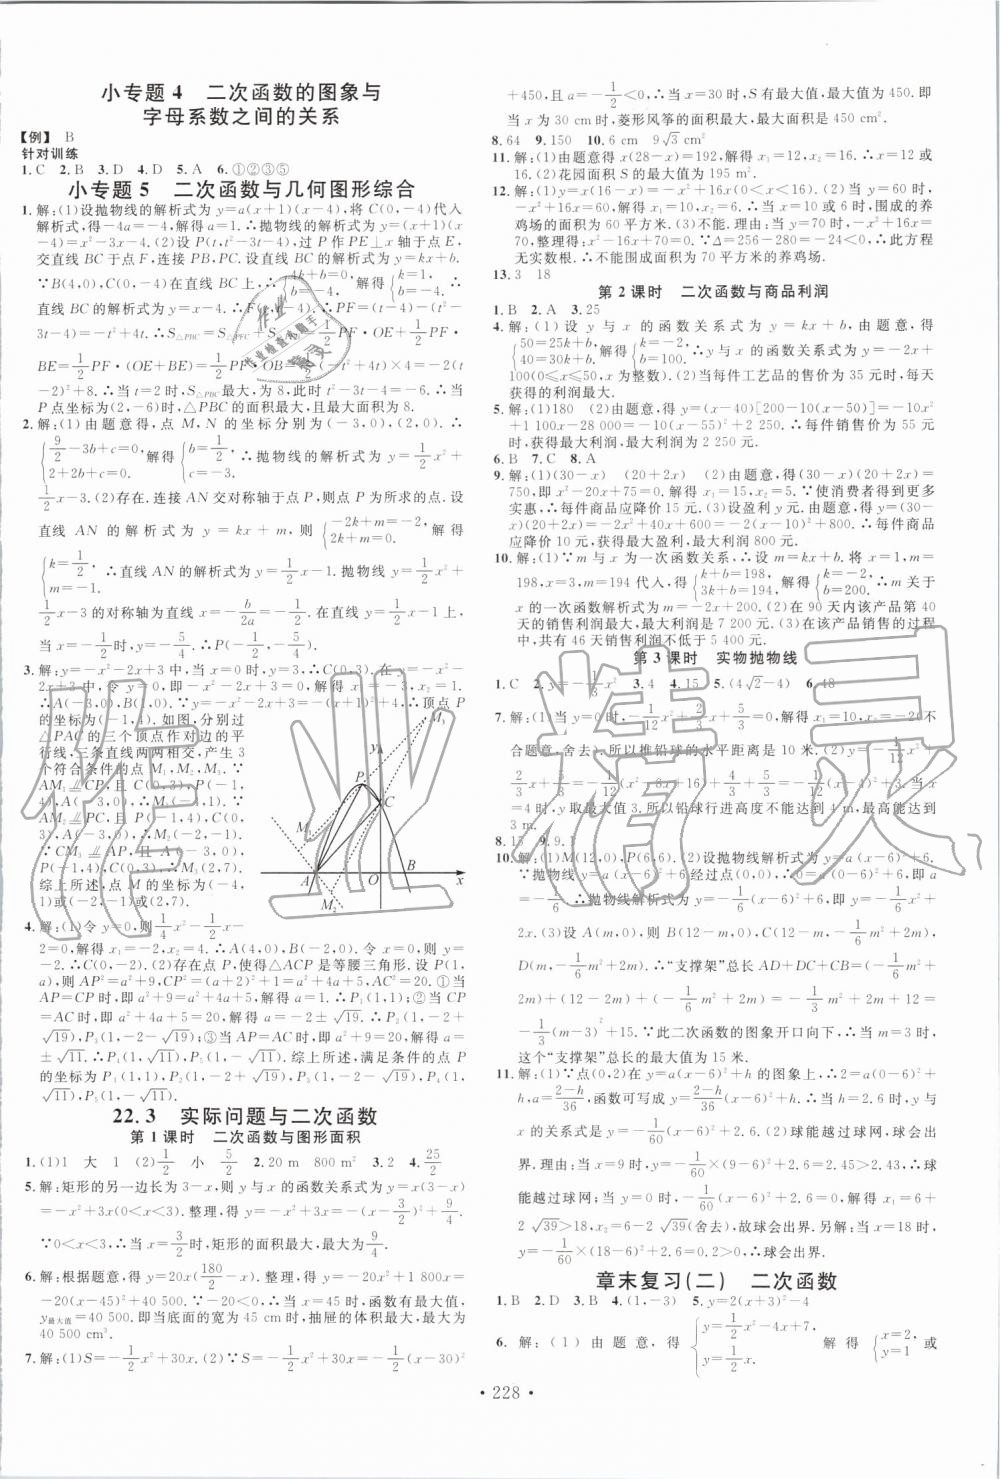 小专题4 二次函数的图象与
字母系数之间的关系
【例】 B
针对训练
1.C 2.B 3.D 4.D 5.A 6.①②③⑤
小专题5 二次函数与几何图形综合
1.解:(1)设抛物线的解析式为 y=a(x+1)(x-4),将 C(0,-4)代入
解析式,得-4a=-4,解得 a=1.∴抛物线的解析式为 y=(x+1)(x
-4)=x²-3x-4.(2)设 P(t,t²-3t-4),过 P 作 PE⊥x 轴于点 E,
交直线 BC 于点 F,连接 PB,PC.设直线 BC 的解析式为 y=kx+b.
∵B(4,0),C(0,-4)在直线 BC 上,∴{4k+b=0, b=-4. 解得{k=1, b=-4. ∴
直线 BC 的解析式为 y=x-4.∴F(t,t-4).∴PF=(t-4)-(t²-
3t-4)=-t²+4t.∴S△PBC=S△PCF+S△PBF=1/2PF·OE+1/2PF·
BE=1/2PF·(OE+BE)=1/2PF·OB=1/2(-t²+4t)×4=-2(t
-2)²+8.∴当 t=2 时,S△PBC最大,为 8,此时 t²-3t-4=-6.∴当
P 点坐标为(2,-6)时,△PBC 的面积最大,且最大面积为 8.
2.解:(1)由题意得,点 M,N 的坐标分别为(-3,0),(2,0).∴
{9/2-3b+c=0, 2+2b+c=0. 解得{b=1/2, c=-3. ∴抛物线的解析式为 y=1/2x²+
1/2x-3.(2)存在.连接 AN 交对称轴于点 P,则点 P 为所求的点.设
直线 AN 的解析式为 y=kx+m,则{-2k+m=-2, 2k+m=0. 解得
{k=1/2, m=-1. ∴直线 AN 的解析式为 y=1/2x-1.抛物线 y=1/2x²+
1/2x-3 的对称轴为直线 x=-b/2a=-1/2.在直线 y=1/2x-1 上,
当 x=-1/2时,y=-5/4.∴P(-1/2,-5/4).
3.解:(1)在 y=-x²-2x+3 中,当 x=0 时,y=3.∴C(0,3).在 y=
-x²-2x+3 中,令 y=0,即-x²-2x+3=0,解得 x₁=-3,x₂=1.
∴A(-3,0),B(1,0).∵y=-x²-2x+3=-(x+1)²+4,∴顶点 P
的坐标为(-1,4).如图,分别过
△PAC 的三个顶点作对边的平
行线,三条直线两两相交,产生 3
个符合条件的点 M₁,M₂,M₃.∵
AM₃∥CP,且 C(0,3),P(-1,
4),A(-3,0),∴M₃(-4,1).∵
AM₂∥PC,且 P(-1,4),C(0,
3),A(-3,0),∴M₂(-2,-1).∵
CM₁∥AP,且 A(-3,0),
P(-1,4),C(0,3),∴M₁(2,7).
综上所述,点 M 的坐标为(-4,
1)或(-2,-1)或(2,7).
M₁
y
P
C
M₃
A
O
B
x
M₂
4.解:(1)令 y=0,则1/4x²-1/2x-
2=0,解得 x₁=-2,x₂=4.∴A(4,0),B(-2,0).令 x=0,则 y=
-2.∴C(0,-2).(2)存在点 P,使得△ACP 是等腰三角形.设 P(1,
a),则 AP²=a²+9,CP²=(a+2)²+1=a²+4a+5,AC²=20.①当
AP=CP 时,即 a²+9=a²+4a+5,解得 a=1.∴P₁(1,1);②当 CP
=AC时,即 a²+4a+5=20,解得 a=-2±√19.∴P₂(1,-2+
√19),P₃(1,-2-√19);③当 AP=AC 时,即 a²+9=20,解得 a=
±√11.∴P₄(1,√11),P₅(1,-√11).综上所述,满足条件的点 P
的坐标为 P₁(1,1),P₂(1,-2+√19),P₃(1,-2-√19),P₄(1,
√11),P₅(1,-√11).
22.3 实际问题与二次函数
第1课时 二次函数与图形面积
1.(1)1 大 1 (2)1/2 小 5/2 2.20 m 800 m² 3.2 4.25/2
5.解:矩形的另一边长为 3-x,则 y 与 x 的函数关系式为 y=x(3-x)
=-x²+3x(0<x<3).整理,得 y=-x²+3x=-(x-3/2)²+9/4.
∵0<x<3,∴当 x=3/2时,矩形的面积最大,最大为9/4.
6.解:根据题意,得 y=20x(180/2-x).整理,得 y=-20x²+1 800x=
-20(x-45)²+40 500.∵-20<0,∴当 x=45 时,函数有最大值,
y最大值=40 500.即当底面的宽为 45 cm 时,抽屉的体积最大,最大为
40 500 cm³.
7.解:(1)S=-1/2x²+30x.(2)∵S=-1/2x²+30x=-1/2(x-30)²
+450,且 a=-1/2<0,∴当 x=30 时,S 有最大值,最大值为 450.即
当 x 为 30 cm 时,菱形风筝的面积最大,最大面积为 450 cm².
8.64 9.150 10.6 cm 9√3 cm²
11.解:(1)由题意得 x(28-x)=192,解得 x₁=12,x₂=16.∴x 为 12 或
16.(2)花园面积 S 的最大值为 195 m².
12.解:(1)y=x(16-x)=-x²+16x(0<x<16).(2)当 y=60 时,
-x²+16x=60,解得 x₁=10,x₂=6.∴当 x=10 或 6 时,围成的养
鸡场的面积为 60 平方米.(3)不能.理由:当 y=70 时,-x²+16x=
70,整理得:x²-16x+70=0.∵Δ=256-280=-24<0,∴此方程
无实数根.∴不能围成面积为 70 平方米的养鸡场.
13.3 18
第2课时 二次函数与商品利润
1.B 2.A 3.25
4.解:(1)设 y 与 x 的函数关系式为 y=kx+b,由题意,得
{50=25k+b, 80=10k+b. 解得{k=-2, b=100. ∴y 与 x 的函数关系式为 y=-2x+
100(0≤x≤50,且 x 为整数).(2)当每件工艺品的售价为 35 元时,每天
获得的利润最大.
5.解:(1)180 (2)由题意,得 y=(x-40)[200-10(x-50)]=-10x²
+1 100x-28 000=-10(x-55)²+2 250.∴每件销售价为 55 元
时,获得最大利润,最大利润为 2 250 元.
6.B 7.C 8.A
9.解:(1)(30-x) (20+2x) (2)由题意,得(30-x)(20+2x)=
750,即 x²-20x+75=0.解得 x₁=15,x₂=5.∵使消费者得到更多
实惠,∴每件商品应降价 15 元.(3)设盈利 y 元.由题意,得 y=(30-
x)(20+2x)=-2x²+40x+600=-2(x-10)²+800.∴每件商品
应降价 10 元,获得最大盈利,最大利润为 800 元.
10.解:(1)∵m 与 x 为一次函数关系,∴设 m=kx+b.将 x=1,m=
198,x=3,m=194 代入,得{k+b=198, 3k+b=194. 解得{k=-2, b=200. ∴m 关于
x 的一次函数解析式为 m=-2x+200.(2)在 90 天内该产品第 40
天的销售利润最大,最大利润是 7 200 元.(3)在该产品销售的过程
中,共有 46 天销售利润不低于 5 400 元.
第3课时 实物抛物线
1.C 3.4 4.15 5.(4√2-4) 6.48
7.解:(1)当 y=0 时,-1/12x²+2/3x+5/3=0.解得 x₁=10,x₂=-2(不
合题意,舍去).所以推铅球的水平距离是 10 米.(2)y=-1/12x²+
2/3x+5/3=-1/12(x²-8x+16)+4/3+5/3=-1/12(x-4)²+3.当 x
=4 时,y 取最大值 3.所以铅球行进高度不能达到 4 m,最高能达到
3 m.
8.15 9.9.1
10.解:(1)M(12,0),P(6,6).(2)设抛物线解析式为 y=a(x-6)²+6.
∵抛物线 y=a(x-6)²+6 经过点(0,0),∴0=a(0-6)²+6,即 a=
-1/6.∴抛物线解析式为 y=-1/6(x-6)²+6,即 y=-1/6x²+
2x.(3)设 A(m,0),则 B(12-m,0),C(12-m,-1/6m²+2m),
D(m,-1/6m²+2m).∴“支撑架”总长 AD+DC+CB=(-1/6m²+
2m)+(12-2m)+(-1/6m²+2m)=-1/3m²+2m+12=
-1/3(m-3)²+15.∵此二次函数的图象开口向下,∴当 m=3 时,
这个“支撑架”总长的最大值为 15 米.
11.解:(1)∵点(0,2)在 y=a(x-6)²+h 的图象上,∴2=a(0-6)²+
h,a=(2-h)/36,函数可写成 y=(2-h)/36(x-6)²+h.∴当 h=2.6 时,y 与 x
的关系式是 y=-1/60(x-6)²+2.6.(2)球能越过球网,球会出
界.理由:当 x=9 时,y=-1/60×(9-6)²+2.6=2.45>2.43,∴球
能越过球网;当 y=0 时,-1/60(x-6)²+2.6=0.解得 x₁=6+
2√39>18,x₂=6-2√39(舍去),故球会出界.另解:当 x=18 时,
y=-1/60×(18-6)²+2.6=0.2>0,∴球会出界.
章末复习(二) 二次函数
1.B 2.D 3.B 4.(1,-3) 5.y=2(x+3)²-4
6.解:(1)由题意,得{y=1/2x²-4x+7, y=1/2x. 解得{x=2, y=1 或
· 228 ·